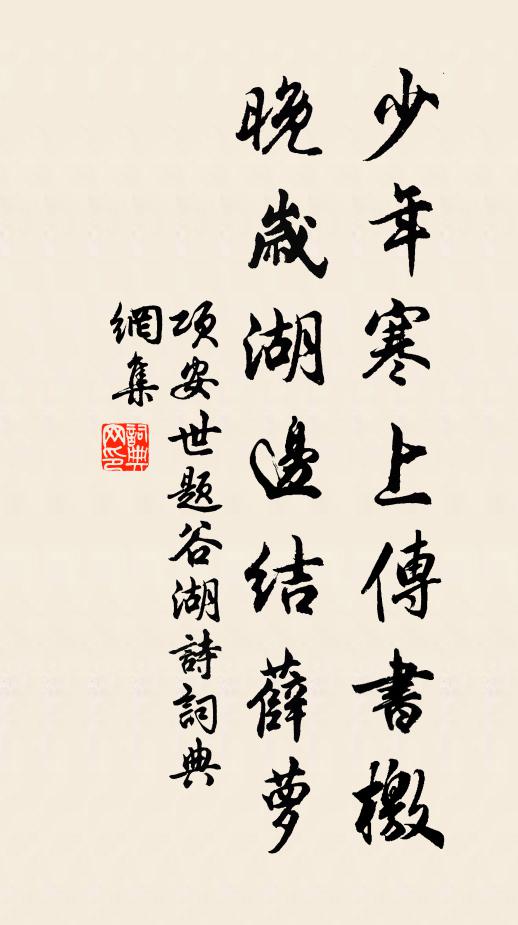 少年寒上傳書檄
晚歲湖邊結薜萝
项安世题谷湖詩詞典
網集
詞典
网印